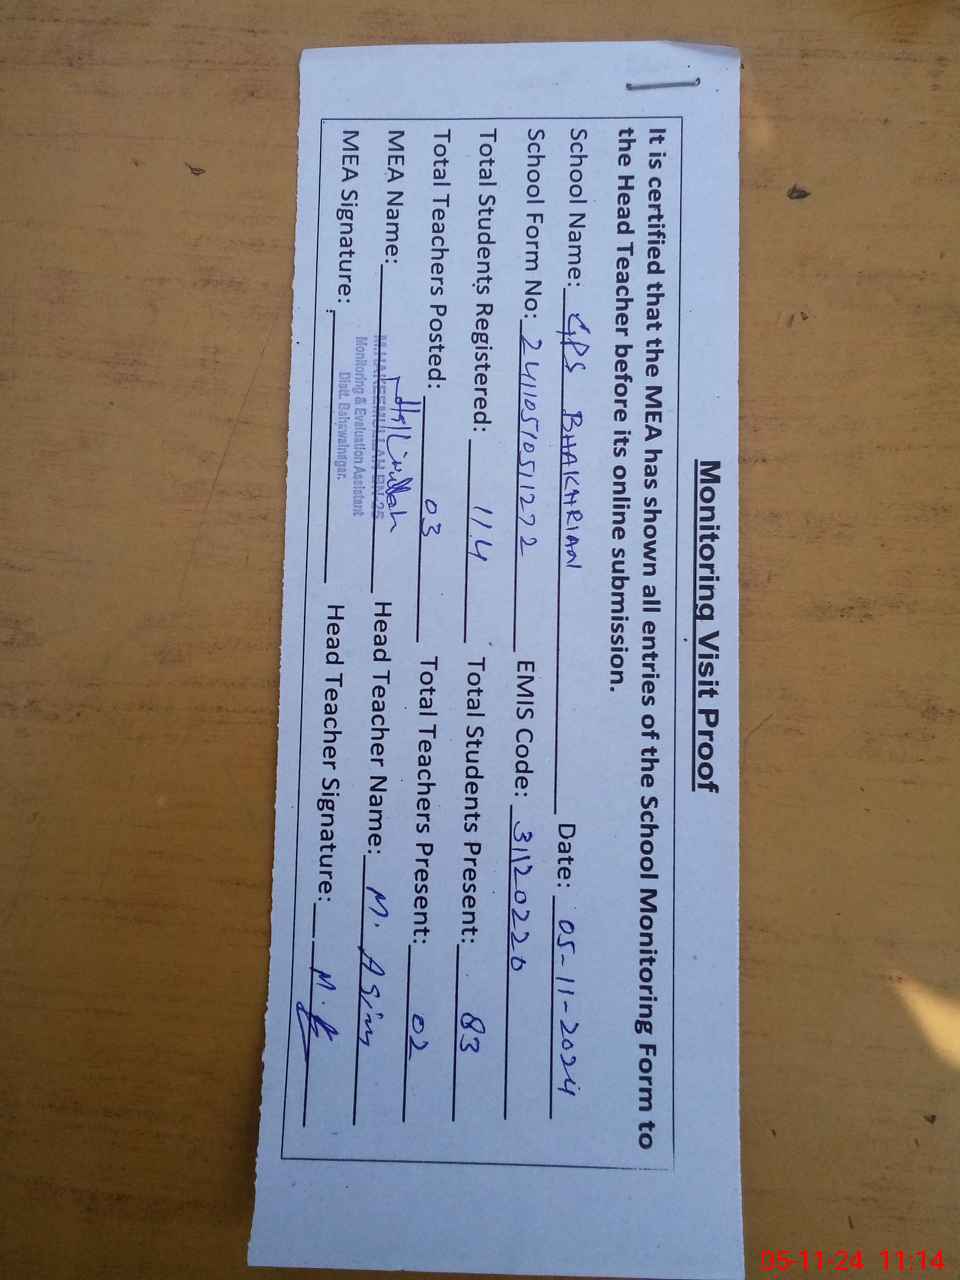 Monitoring Visit Proof
It is certified that the MEA has shown all entries of the School Monitoring Form to
the Head Teacher before its online submission.
School Name: GPS BHAKHRIAN Date: 05-11-2024
School Form No: 2411051051272 EMIS Code: 31120220
Total Students Registered: 114 Total Students Present: 83
Total Teachers Posted: 03 Total Teachers Present: 02
MEA Name: Head Teacher Name: M. Asim
Monitoring & Evaluation Assistant
Distt. Bahawalnagar.
MEA Signature: Head Teacher Signature:
05-11-24 11:14